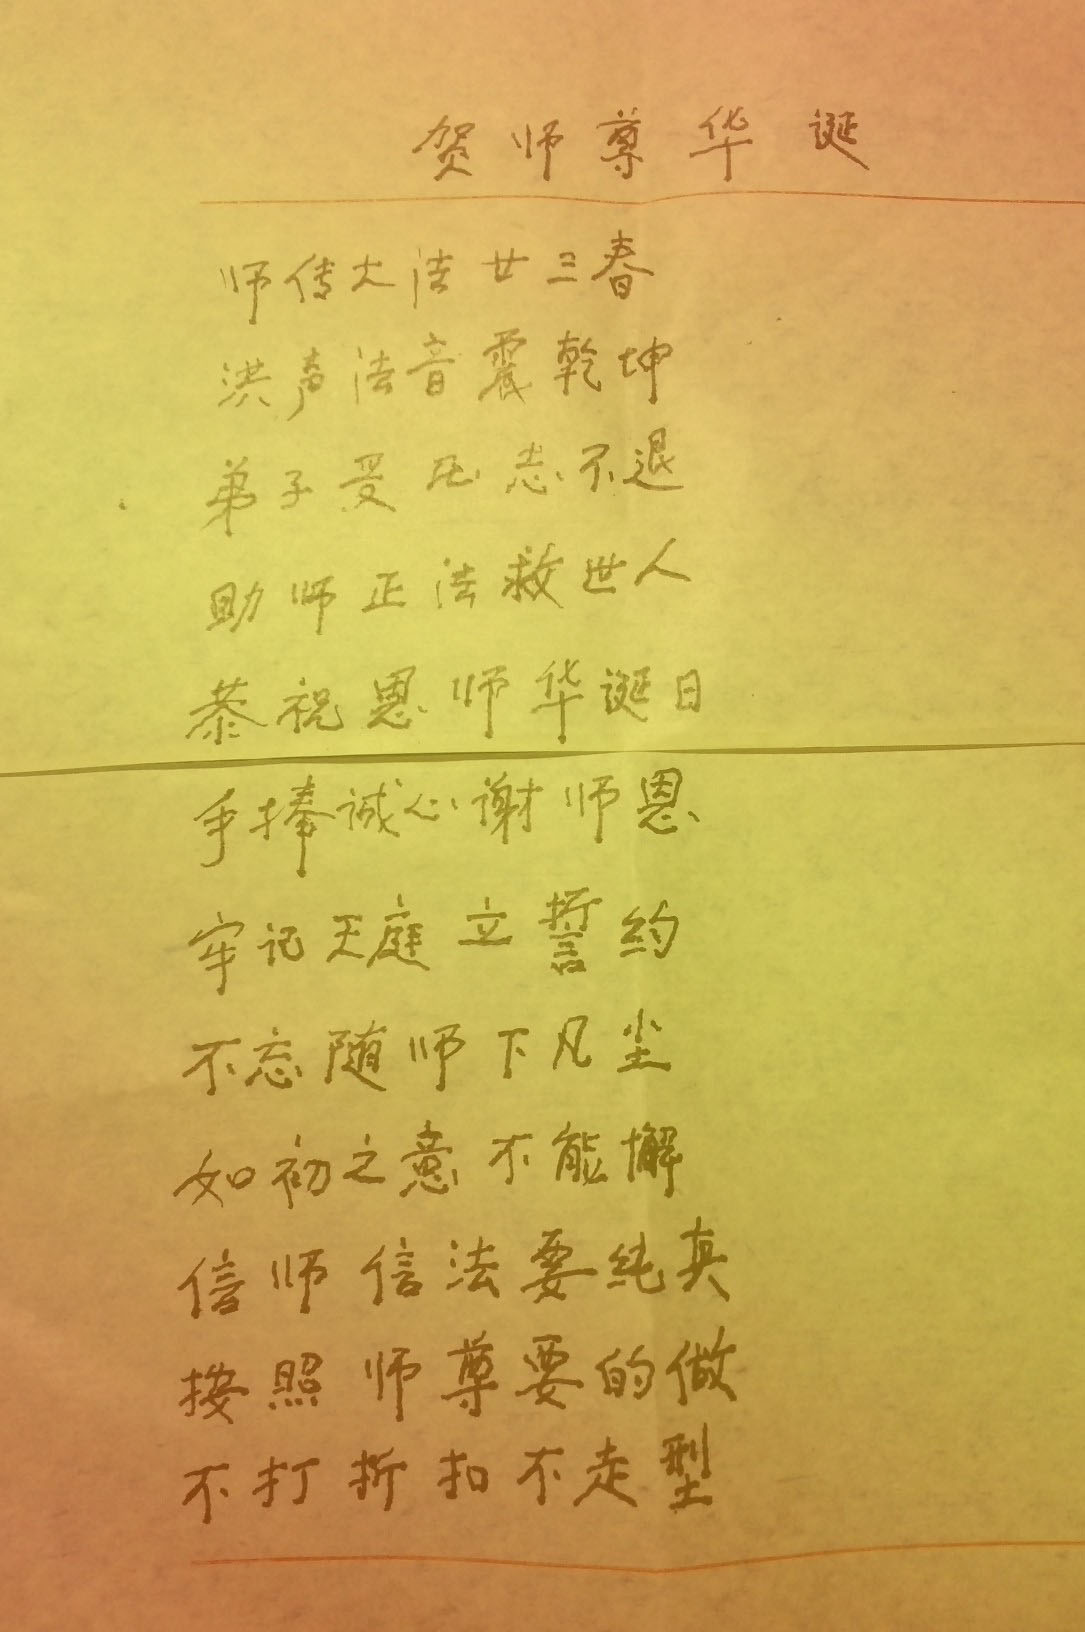 贺师尊华诞
师传大法廿三春
洪声法音震乾坤
弟子受死志不退
助师正法救世人
恭祝恩师华诞日
手捧诚心谢师恩
牢记天庭立誓约
不忘随师下凡尘
如初之意不能懈
信师信法要纯真
按照师尊要的做
不打折扣不走型